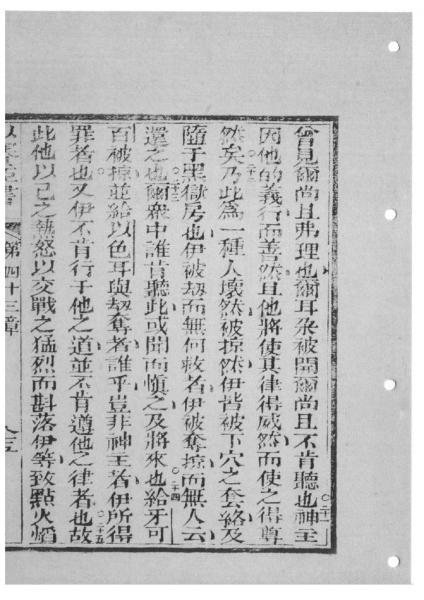 曾見爾尚且弗理也爾耳朶被開爾尚且不肯聽也神主
因他的義行而善然且他將使其律得威然而使之得尊
然矣乃此為一種人壞然被掠然伊皆被下穴之套絡及
隨于黑獄房也伊被刼而無何救者伊被奪掠而無人云
還之也爾衆中誰肯聽此或聞而慎之及將來也給牙可
百被掠並給以色耳與刼奪者誰乎豈非神主者伊所得
罪者也又伊不肯行于他之道並不肯遵他之律者也故
此他以己之熱怒以交戰之猛烈而斟落伊等致點火熖
第四十三章